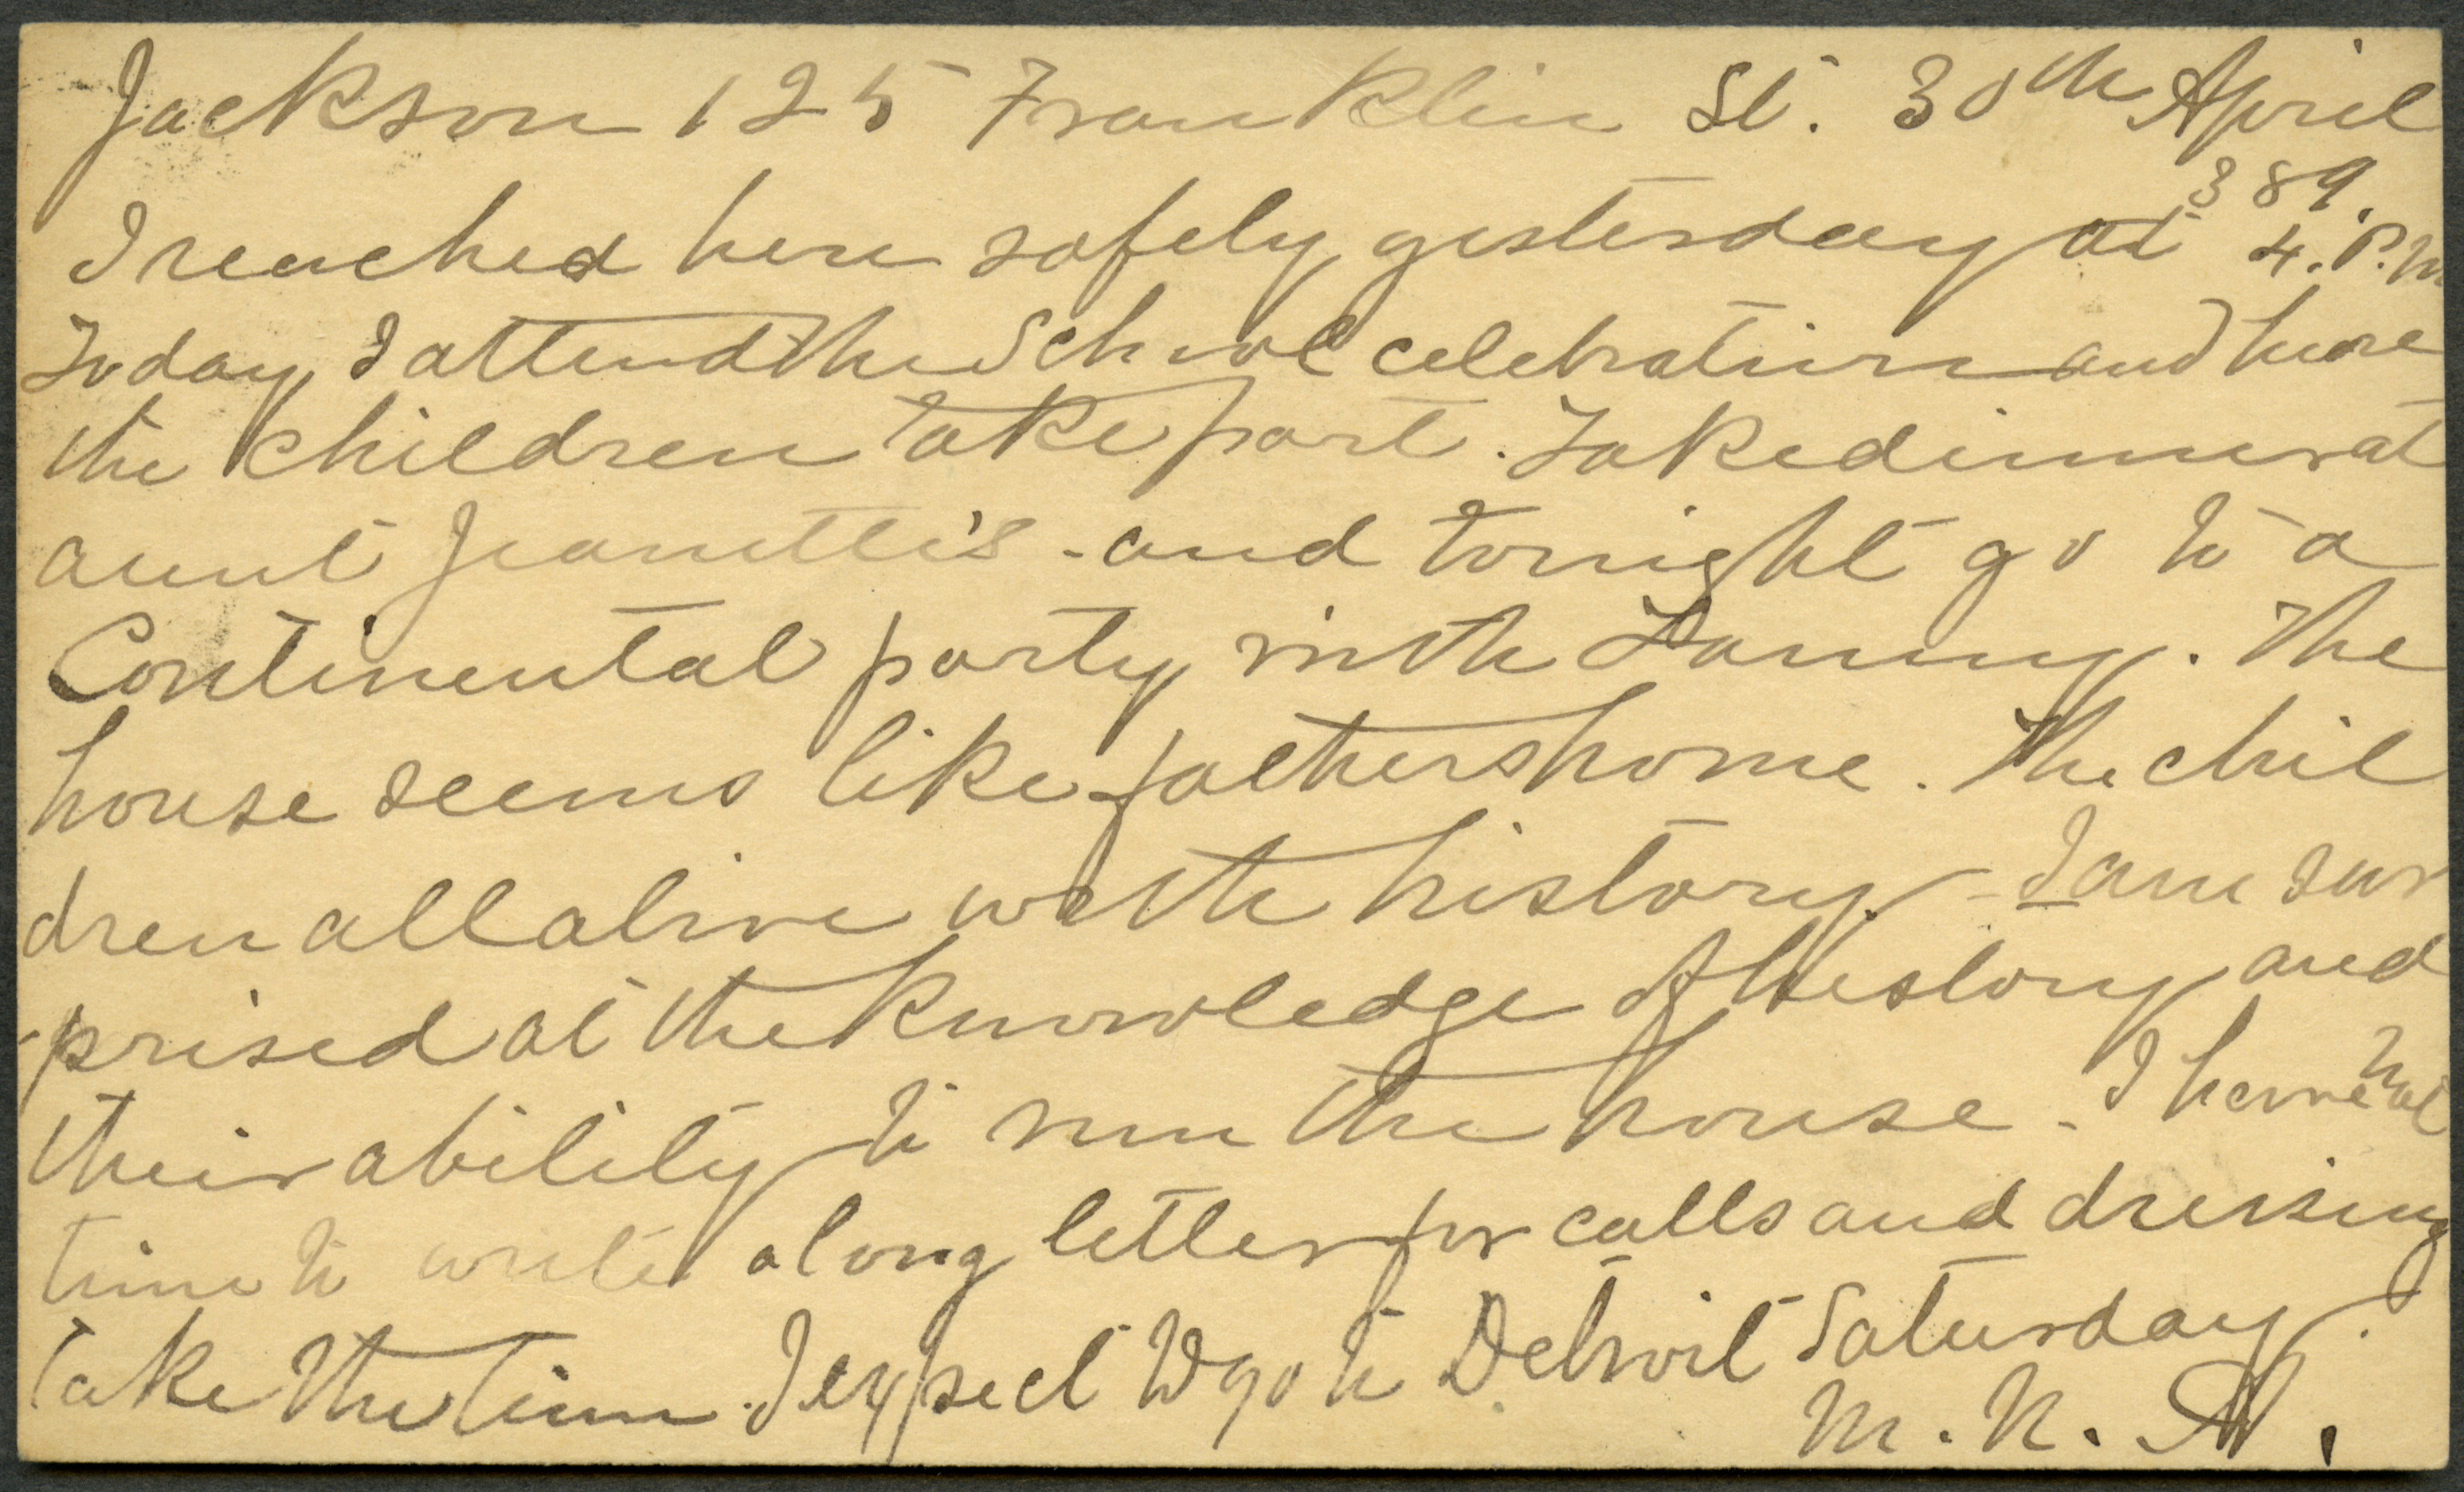 Jackson 125 Franklin St. 30th April
389.
I reached here safely yesterday at 4. P.M
Today I attend the School celebration and hear
the children take part. Take dinner at
aunt Jeanettes - and tonight go to a
Continental party with Fanny. The
house seems like fathers home. The chil
dren all alive with history - I am sur
prised at the knowledge of history and
their ability to run the house. I have not
time to write a long letter for calls and dressing
take the time. I expect to go to Detroit Saturday.
M. N. A.